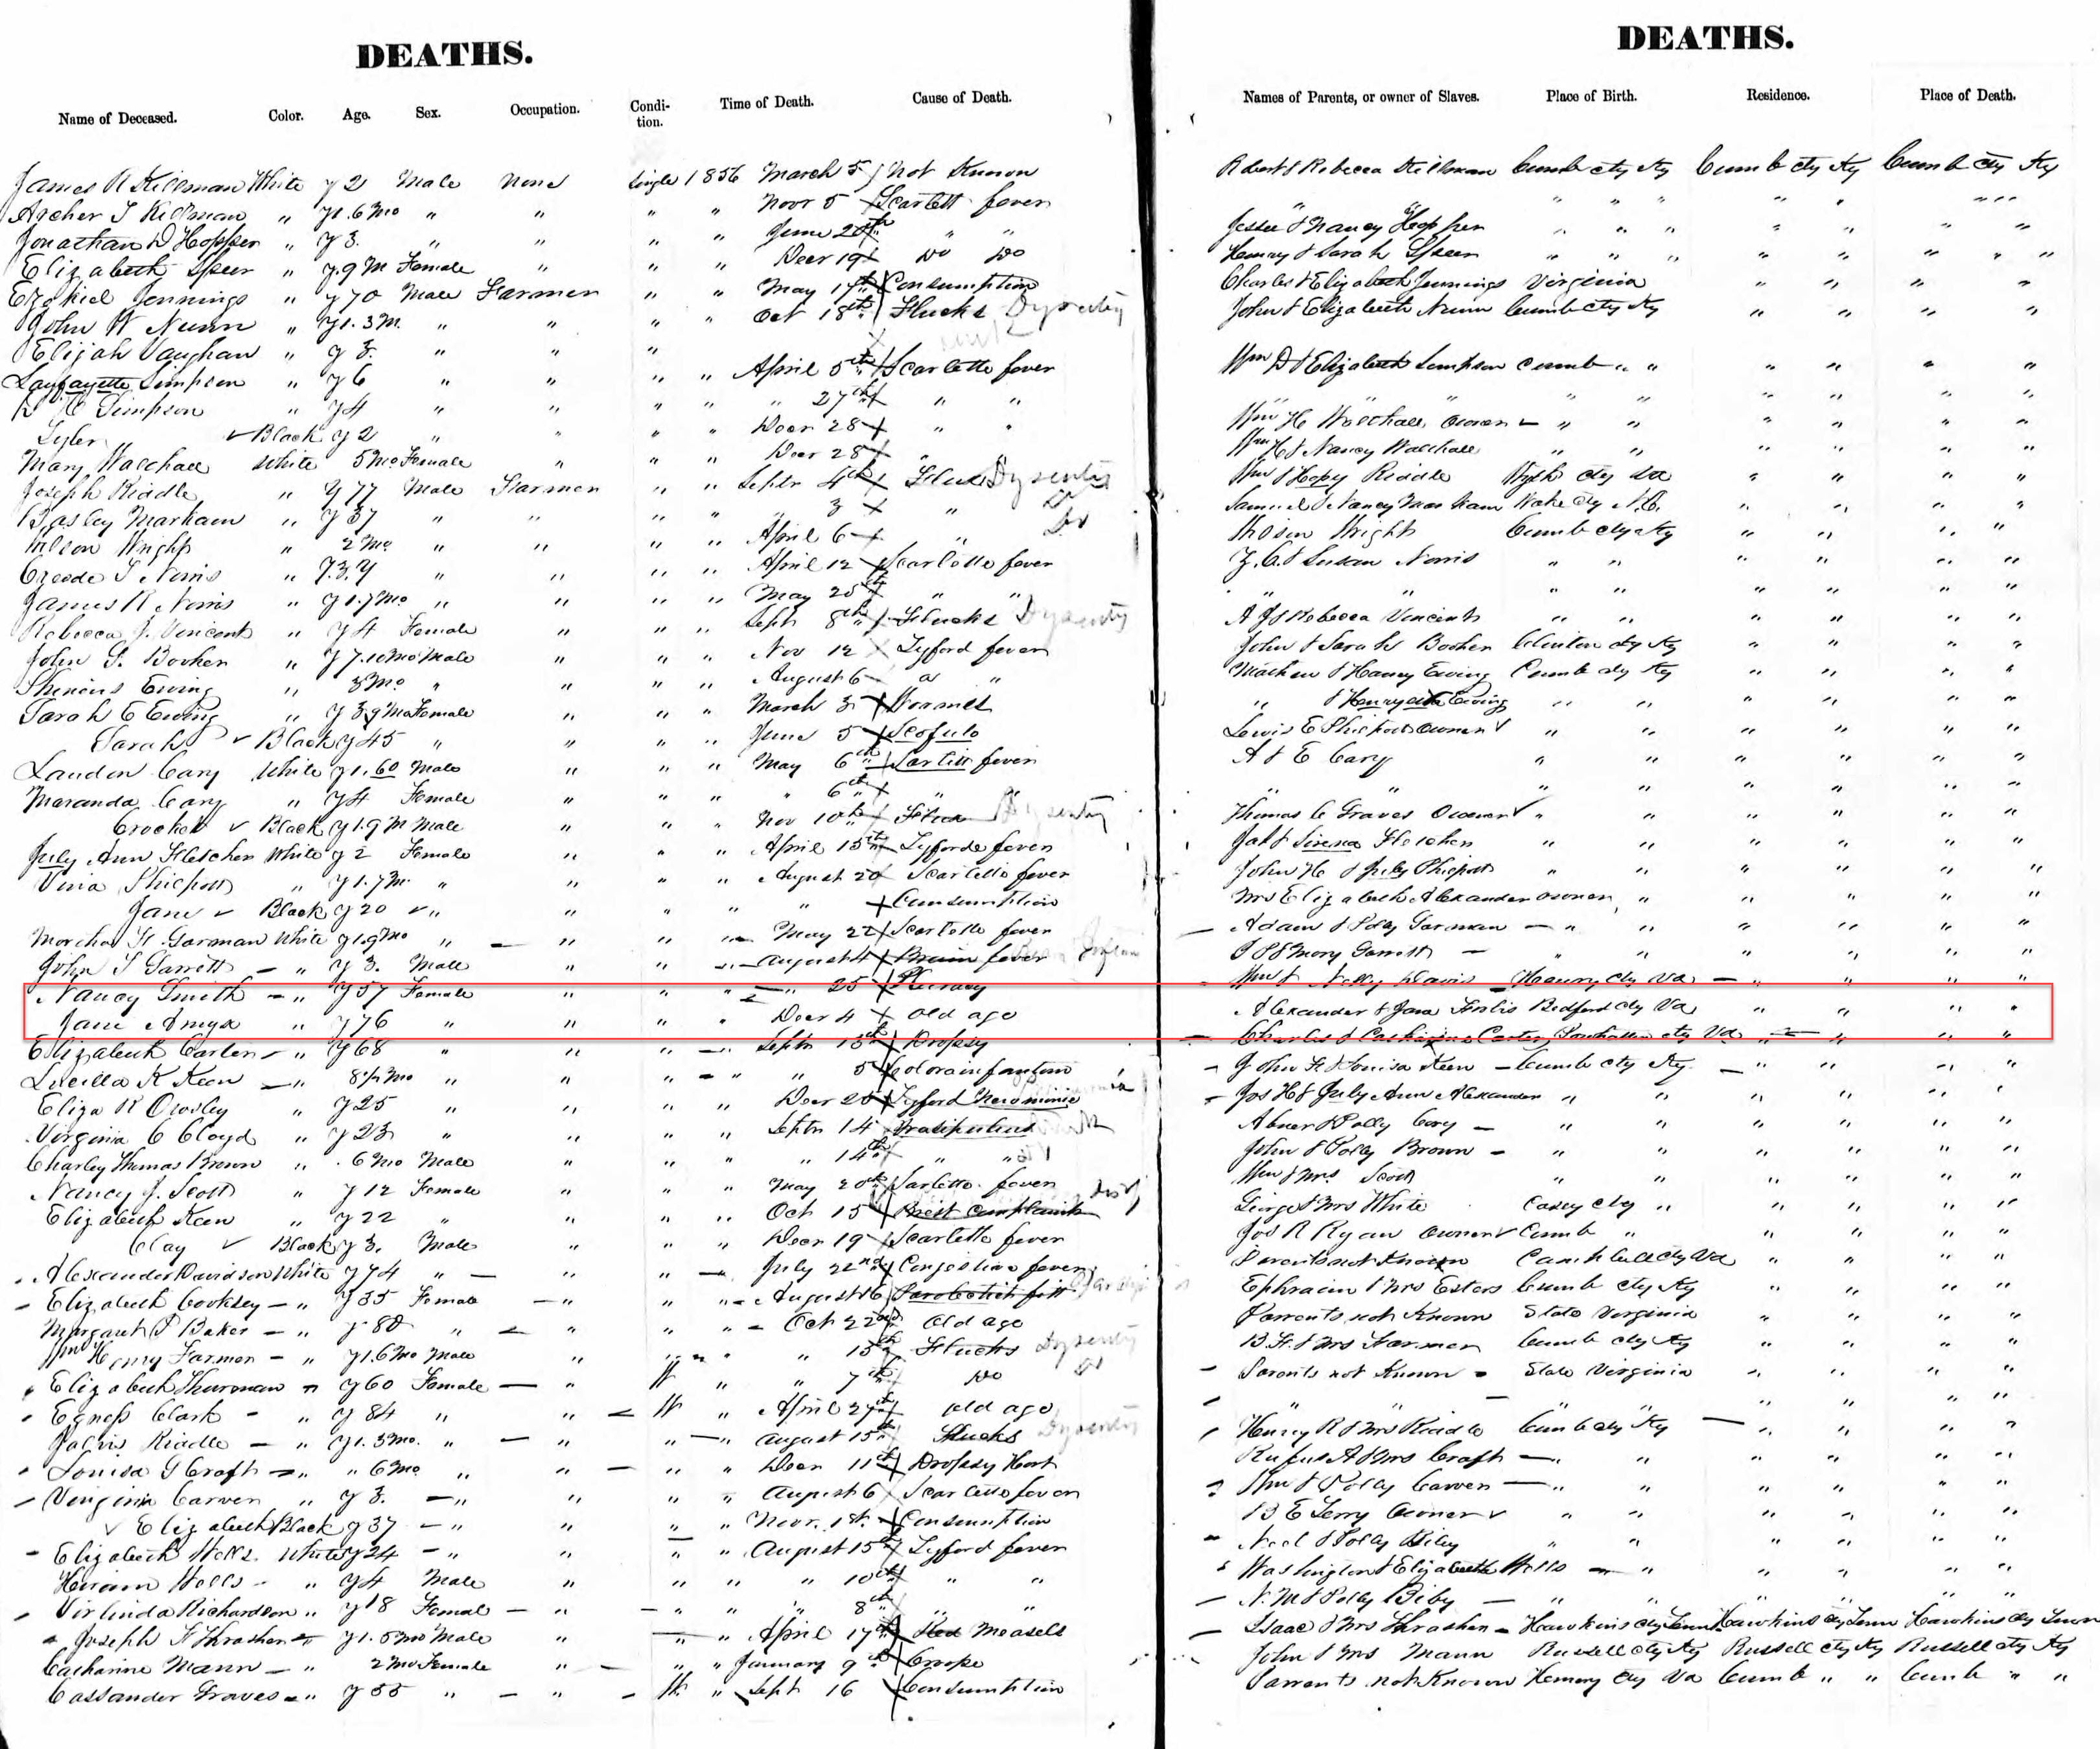 DEATHS.
Name of Deceased. Color. Age. Sex. Occupation. Condi-tion. Time of Death. Cause of Death.
James R Killman White y 2 Male None Single 1856 March 5 Not Known
Archer T Killman " y1.6mo " " " " Novr 5 Scarlett fever
Jonathan D Hopper " y 3. " " " " June 20th " "
Elizabeth Speer " y.9 M Female " " " Decr 19 Do Do
Ezekiel Jennings " y 70 Male Farmer " " May 17th Consumption
John W Nunn " y1.3m. " " " " Oct 18th Flucks Dysentery
Elijah Vaughan " y 3. " " "
Layfayette Simpson " y 6 " " " " April 5th Scarletto fever
Simpson " y4 " " " " " 27th " "
Tyler Black y 2 " " " " Decr 28 " "
Mary Walthall White 5 mo Female " " " Decr 28 "
Joseph Riddle " y 77 Male Farmer " " Septr 4th Flux Dysentery
Basley Markam " y 37 " " " " " 3 " Do
Wilson Wright " 2 mo " " " " April 6 " Do
Norris " y.3.y " " " " April 12 Scarletto fever
James R Norris " y1.7mo " " " " May 20th " "
Rebecca J. Vincent " y4 Female " " " Septr 8th Flucks Dysentery
John S. Booher " y 7.10mo Male " " " Nov 12 Tyford fever
Ewing " 3mo " " " " August 6 "
Sarah E Ewing " y 3,9mo Female " " " March 3
Sarah Black y45 " " " " June 5 Scofulo
Landon Cary White y1.60 Male " " " May 6th Scarlitt fever
Maranda Cary " y4 Female " " " " 6th " "
Crocket Black y1.9 m Male " " " Nov 10th Flux Dysentery
July Ann Fletcher White y 2 Female " " " April 15th Tyforde fever
" y1.7m. " " " " August 20 Scarletto fever
Jane Black y20 " " " " " Consumption
Garman White y1.9mo " " " " May 22 Scarletto fever
John T Garrett " y 3. Male " " " August 4 Brain fever
Nancy Smith " y57 Female " " " " 25 Plurasy
Jane Amyx " y76 " " " " Decr 4 Old age
Elizabeth Carter " y68 " " " " Septr 15th Dropsy
Lucilla K Keen " 8½mo " " " " " 5 Colorainfantum
Eliza R Owsley " y25 " " " " Decr 25 Tyford
Virginia C Cloyd " y23 " " " " Septr 14
Charley Thomas Brown " 6 mo Male " " " " 14th " "
Nancy J. Scott " y12 Female " " " May 20th Scarletto fever
Elizabeth Keen " y22 " " " " Oct 15
Clay Black y 3. Male " " " Decr 19 Scarletto fever
Alexander Davidson White y74 " " " July 22nd Congestive fever
Elizabeth Cooksey " y35 Female " " " August 16
Margaret S Baker " y 80 " " " " Oct 22nd Old age
Wm Henry Farmer " y1.6mo Male " " " " 15th Flucks Dysentery
Elizabeth Thurman " y60 Female " W " " 7th Do Do
Egness Clark " y 84 " " W " April 27th old age
Riddle " y1.3mo. " " " " August 15th Flucks Dysentery
Louisa Craft " " 6mo " " " " Decr 11th Dropsy Hart
Virginia Carver " y 3. " " " " August 6 Scarletto fever
Elizabeth Black y37 " " " " Novr. 1st Consumption
Elizabeth Wells. White y24 " " " " August 15th Tyford fever
Hiram Wells " y4 Male " " " " 10th " "
Virlinda Richardson " y18 Female " " " " 8th " "
Joseph F Thrasher " y1.5mo Male " " " April 17th Measels
Catharine Mann " 2mo Female " " " January 9th Croope
Cassander Graves " y55 " " W " Sept 16 Consumption
DEATHS.
Names of Parents, or owner of Slaves. Place of Birth. Residence. Place of Death.
Robert & Rebecca Killman Cumb cty Ky Cumb cty Ky Cumb cty Ky
" " " " " " " " "
Jessee & Nancy Hopper " " " " " " "
Henry & Sarah Speer " " " " " " " "
Charles & Elizabeth Jennings Virginia " " " "
John & Elizabeth Nunn Cumb cty Ky " " " "
Wm D & Elizabeth Simpson Cumb " " " " " "
" " " " " " " " "
Wm H Walthall Owner " " " " " "
Wm H & Nancy Walthall " " " " " "
Wm & Riddle Wyth cty Va " " " "
Samuel & Nancy Markam Wake cty N.C. " " " "
Wright Cumb cty Ky " " " "
& Susan Norris " " " " " "
" " " " " " " "
& Rebecca Vincent " " " " " "
John & Sarah Booher Clinton cty Ky " " " "
Ewing Cumb cty Ky " " " "
" & Ewing " " " " " "
Lewis E Owner " " " " " "
A & E Cary " " " " " "
" " " " " " " "
Thomas C Graves Owner " " " " " "
& Fletcher " " " " " "
John H & July " " " " " "
Mrs Elizabeth Alexander owner " " " " "
Adam & Polly Garman " " " " " "
& Mary Garrett " " " " "
Wm & Davis Henry cty Va " " " "
Alexander & Jane Bedford cty Va " " " "
Charles & Carter Powhatan cty Va " " " "
John & Louisa Keen Cumb cty Ky " " " "
Jos H & July Ann Alexander " " " " " "
Abner & Polly Cary " " " " " "
John & Polly Brown " " " " " "
Wm & Mrs Scott " " " " " "
George & Mrs White Casey cty " " " " "
Jos R Ryan owner Cumb " " " " "
Parents not Known Cambbell cty Va " " " "
Ephraim & Mrs Estes Cumb cty Ky " " " "
Parrents not Known State Virginia " " " "
B. F. & Mrs Farmer Cumb cty Ky " " " "
Parents not Known State Virginia " " " "
" " " " " "
Henry R & Mrs Riddle Cumb cty Ky " " " "
Rufus A & Mrs Craft " " " " " "
Wm & Polly Carver " " " " " "
B E Terry Owner " " " " " "
& Polly " " " " " "
Washington & Elizabeth Wells " " " " "
& Polly Biby " " " " " "
Isaac & Mrs Thrasher Hawkins cty Tenn Hawkins cty Tenn Hawkins cty Tenn
John & Mrs Mann Russell cty Ky Russell cty Ky Russell cty Ky
Parrents not Known Henry cty Va Cumb " " Cumb " "